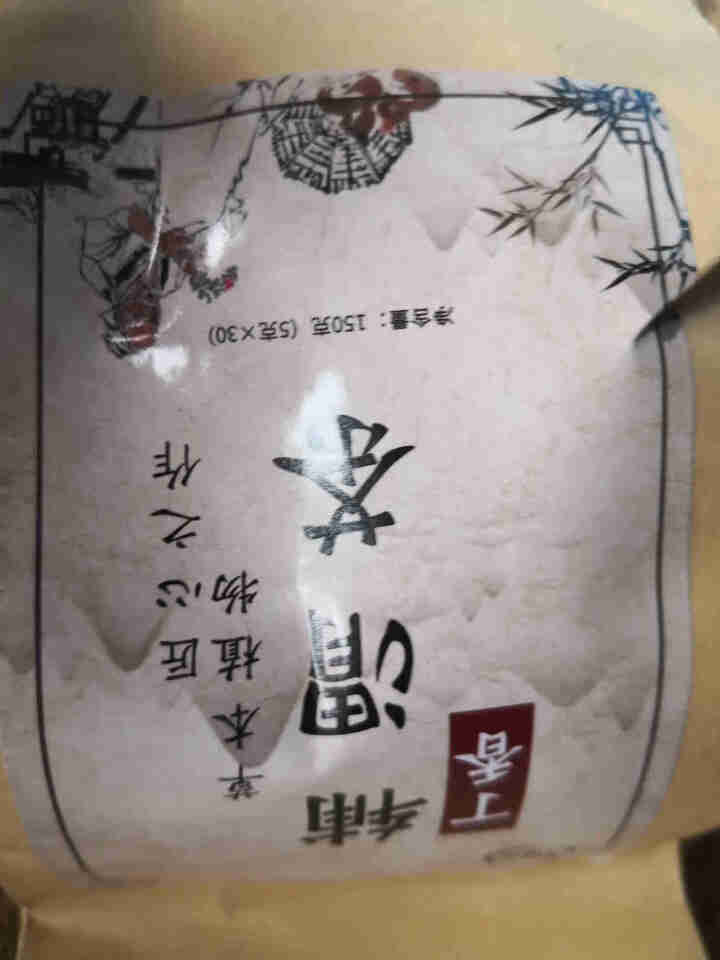 丁香
辅渭茶
草本植物
匠心之作
净含量：150克（5克×30）